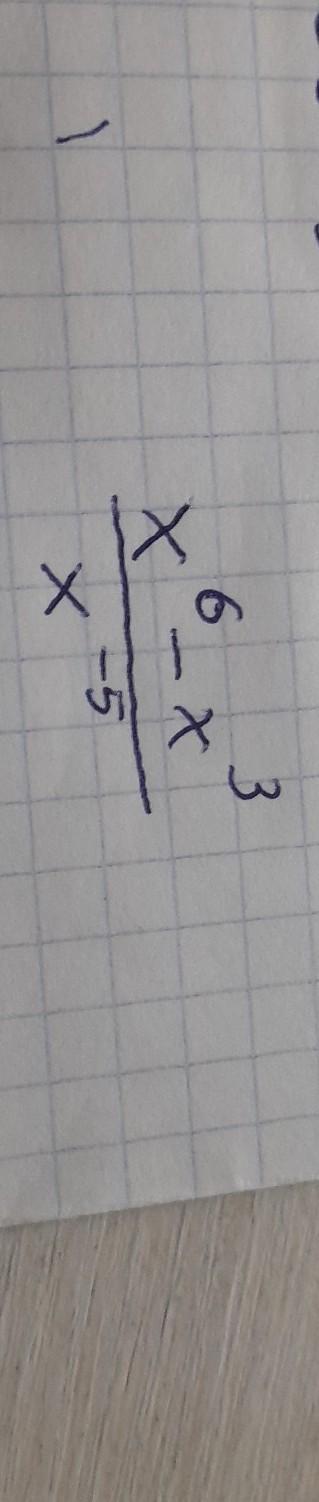 x⁶ - x³
x⁻⁵